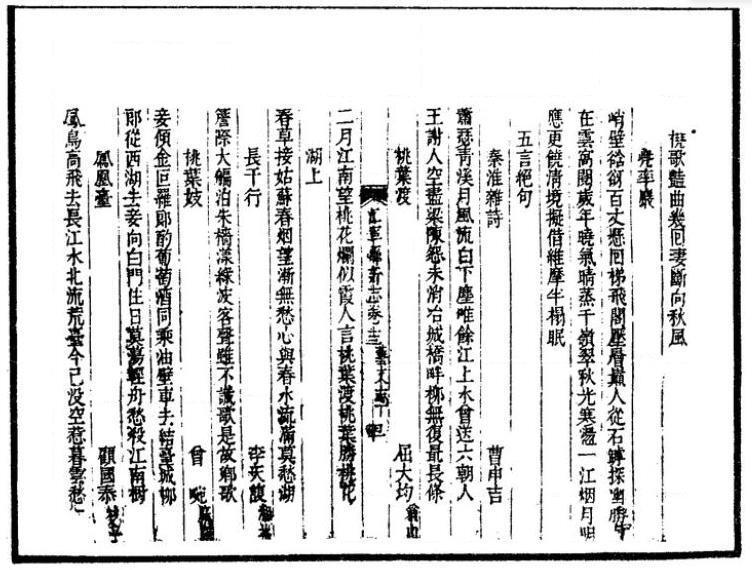 棖歌豔曲幾回凄斷向秋風
堯率巖
峭壁谽谺百丈懸回梯飛閣壓層巔人從石罅探幽勝
在雲窩閱歲年曉氣晴蒸千嶺翠秋光寒盪一江烟月明
應更饒清境擬借維摩半榻眠
五言絕句
秦淮雜詩 曹申吉
蕭瑟青溪月風流白下塵唯餘江上水曾送六朝人
王謝人空盡梁陳怨未消冶城橋畔柳無復最長條
桃葉渡 屈大均
江寧縣新志卷 藝文志
二月江南望桃花爛似霞人言桃葉渡桃葉勝桃花
湖上
春草接姑蘇春烟望漸無愁心與春水流滿莫愁湖
長干行 李天馥
簷際大艑泊朱橋漾綠波客聲雖不識歌是故鄉歌
桃葉妓 曾畹
妾傾金叵羅郎酌葡萄酒同乘油壁車去結臺城柳
郎從西湖去妾向白門住日莫蕩輕舟愁殺江南樹
鳳凰臺 顧國泰
鳳鳥高飛去長江水北流荒臺今已没空惹暮雲愁